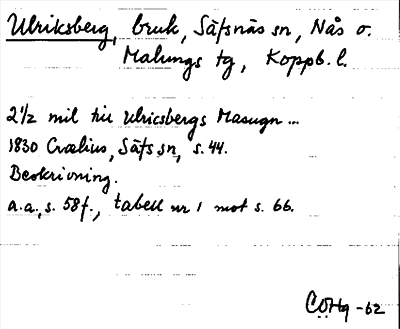 Ulriksberg, bruk, Säfsnäs sn, Nås o.
Malungs tg, Koppb. l.
2 1/2 mil till Ulricsbergs Masugn ...
1830 Crælius, Säfs sn, s. 44.
Beskrivning.
a.a., s. 58f., tabell nr 1 mot s. 66.
-62